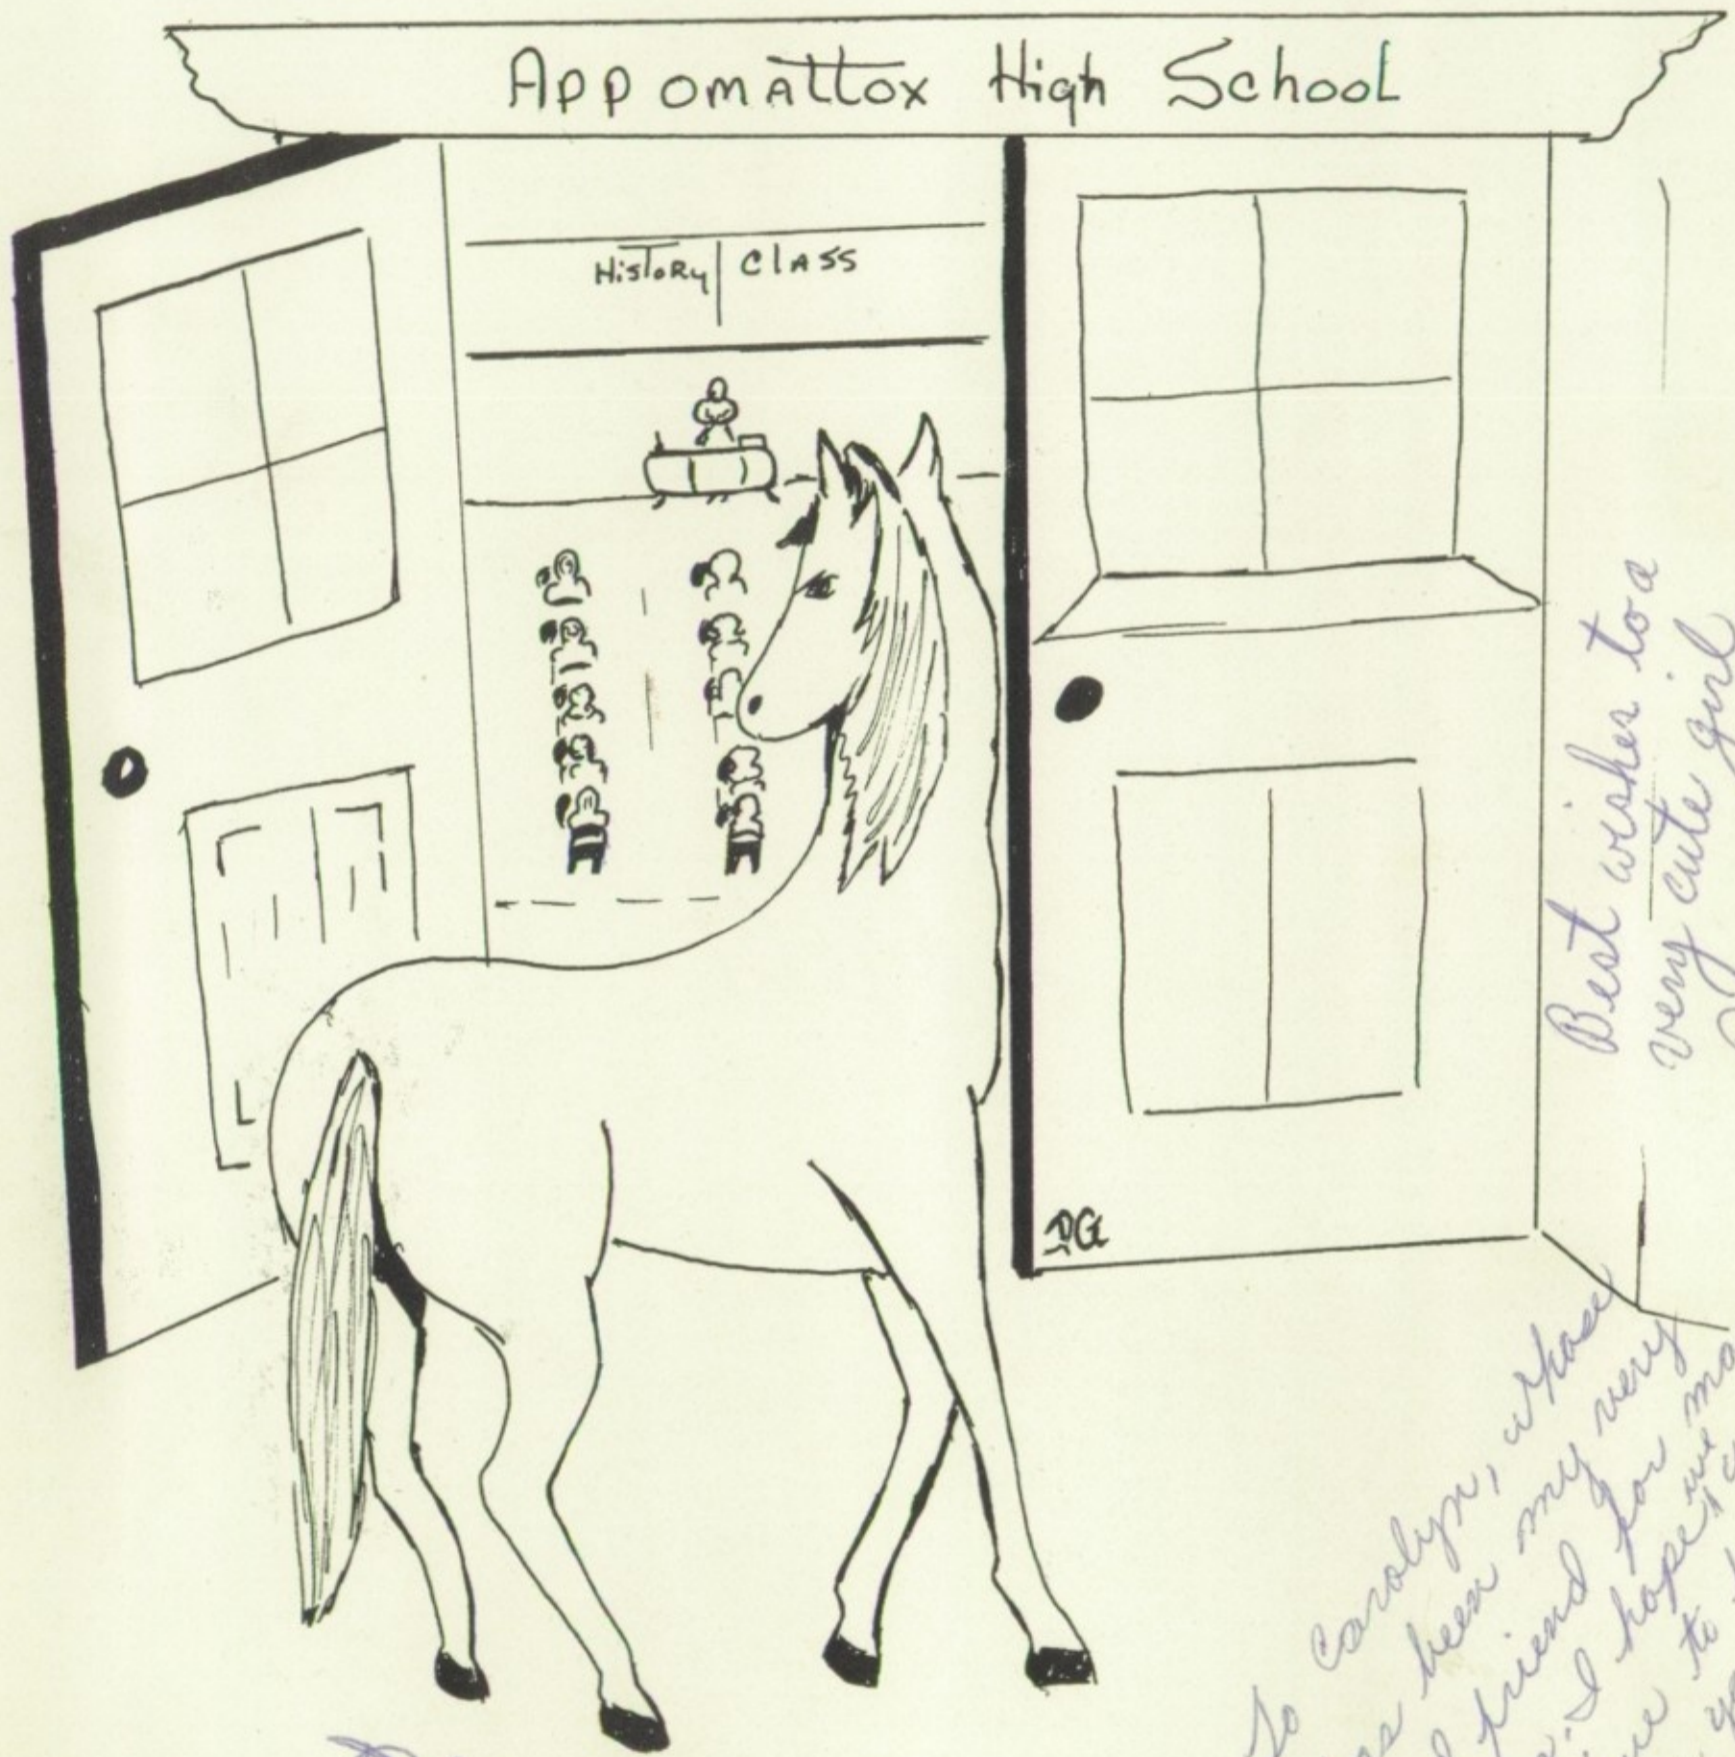 Appomattox High School
History Class
DG
Best wishes to a
very cute girl
To Carolyn, whose
been my very
friend for
I hope we
to